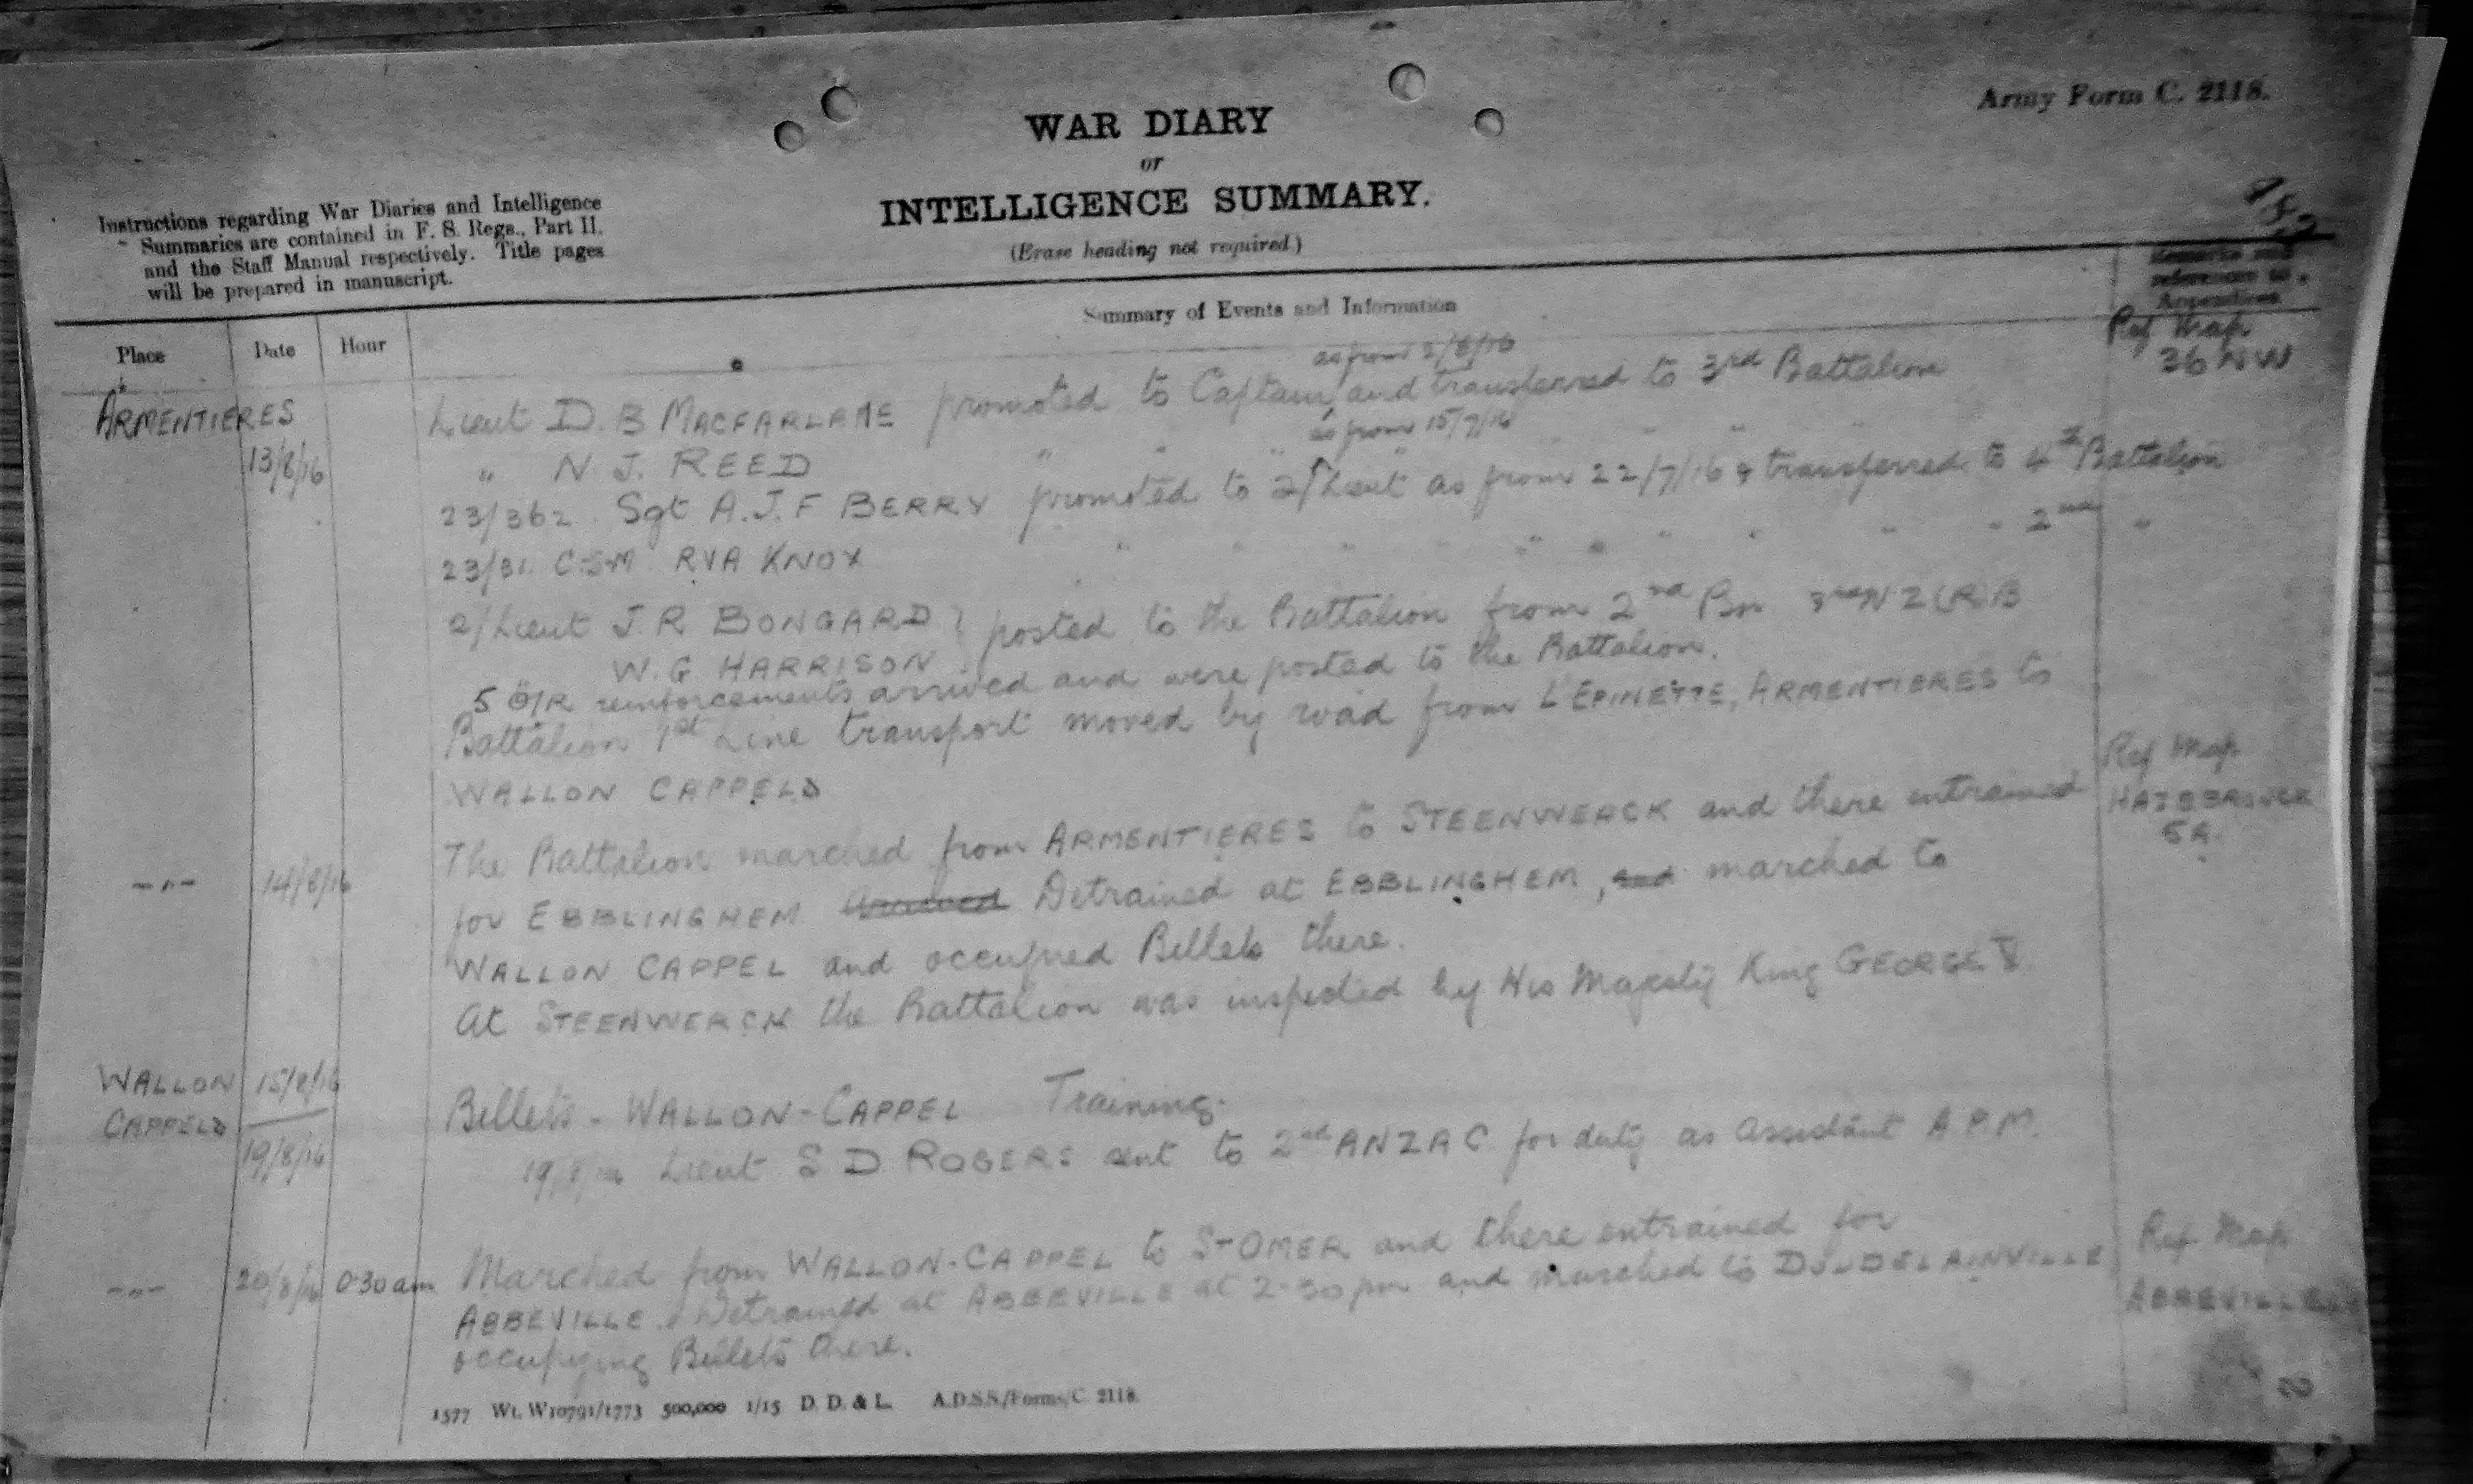 Army Form C. 2118.
WAR DIARY
or
INTELLIGENCE SUMMARY.
(Erase heading not required.)
Instructions regarding War Diaries and Intelligence
Summaries are contained in F. S. Regs., Part II.
and the Staff Manual respectively. Title pages
will be prepared in manuscript.
Place Date Hour Summary of Events and Information Remarks and references to Appendices
Ref Map
36 NW
as from 2/8/16
ARMENTIERES Lieut D. B MACFARLANE promoted to Captain and transferred to 3rd Battalion
as from 15/7/16
13/8/16 " N. J. REED " " " " " " "
23/362 Sgt A.J.F BERRY promoted to 2/Lieut as from 22/7/16 & transferred to 4th Battalion
23/31 CSM RVA KNOX " " " " " " " " " " 2nd "
2/Lieut J.R BONGARD } posted to the Battalion from 2nd Bn 3rd NZ(R)B
W. G HARRISON
5 O/R reinforcements arrived and were posted to the Battalion.
Battalion 1st Line transport moved by road from L'EPINETTE, ARMENTIERES to
WALLON CAPPEL
Ref Map
HAZEBROUCK
5A.
-"- 14/8/16 The Battalion marched from ARMENTIERES to STEENWERCK and there entrained
for EBBLINGHEM Arrived Detrained at EBBLINGHEM, and marched to
WALLON CAPPEL and occupied Billets there.
At STEENWERCK the Battalion was inspected by His Majesty King GEORGE V
WALLON CAPPEL 15/8/16 19/8/16 Billets - WALLON-CAPPEL Training.
19/8/16 Lieut S D ROGERS sent to 2nd ANZAC for duty as Assistant A.P.M.
-"- 20/8/16 0.30 am Marched from WALLON-CAPPEL to ST OMER and there entrained for
ABBEVILLE. Detrained at ABBEVILLE at 2-30 pm and marched to DOUDELAINVILLE
occupying Billets there.
Ref Map
ABBEVILLE
1577 Wt. W10791/1773 500,000 1/15 D. D. & L. A.D.S.S./Forms/C. 2118.